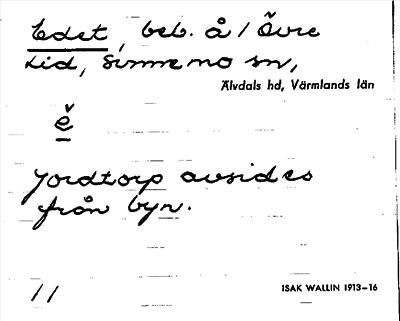 Edet, beb. å / Övre
Lid, Sunnemo sn,
Älvdals hd, Värmlands län
ě
Jordtorp avsides
från byn.
11
ISAK WALLIN 1913–16